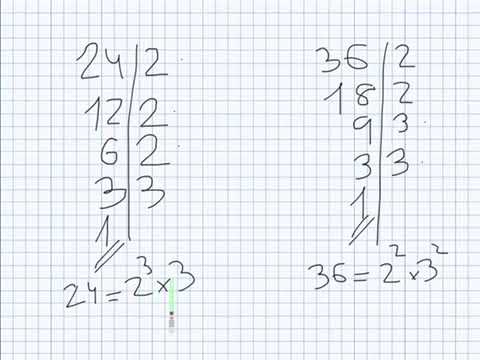 24 | 2
12 | 2
6 | 2
3 | 3
1
24 = 2³ × 3
36 | 2
18 | 2
9 | 3
3 | 3
1
36 = 2² × 3²